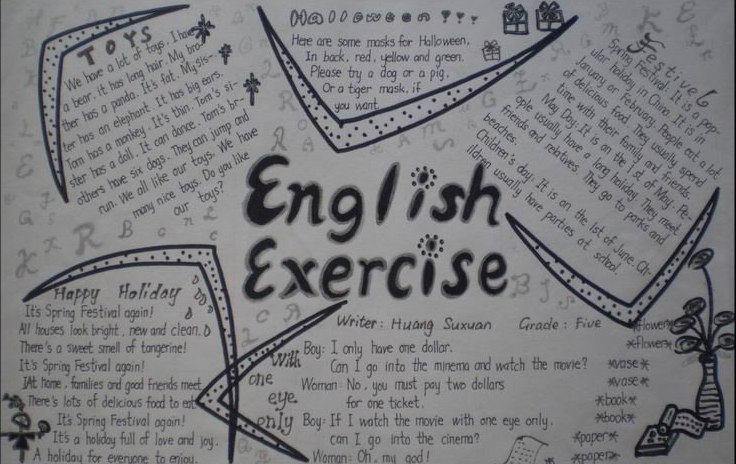 TOYS
We have a lot of toys. I have
a bear. it has long hair. My bro-
ther has a panda. It's fat. My sis-
ter has an elephant. It has big ears.
Tom has a monkey. It's thin. Tom's si-
ster has a doll. It can dance. Tom's br-
others have six dogs. They can jump and
run. We all like our toys. We have
many nice toys. Do you like
our toys?
Halloween ???
Here are some masks for Halloween,
In back, red, yellow and green.
Please try a dog or a pig,
Or a tiger mask, if
you want.
Festive
Spring Festival. It is a pop-
ular holiday in China. It is in
January or February. People eat a lot
of delicious food. They usually spend
time with their family and friends.
May Day: It is on the 1st of May. Pe-
ople usually have a long holiday. They meet
friends and relatives. They go to parks and
beaches.
Children's day. It is on the 1st of June. Ch-
ildren usually have parties at school.
English
Exercise
Happy Holiday
It's Spring Festival again!
All houses look bright, new and clean.
There's a sweet smell of tangerine!
It's Spring Festival again!
At home, families and good friends meet.
There's lots of delicious food to eat.
It's Spring Festival again!
It's a holiday full of love and joy.
A holiday for everyone to enjoy.
With
one
eye
only
Writer: Huang Suxuan Grade: Five
Boy: I only have one dollar.
Can I go into the minema and watch the movie?
Woman: No, you must pay two dollars
for one ticket.
Boy: If I watch the movie with one eye only.
can I go into the cinema?
Woman: Oh, my god!
*flower*
*flower*
*vase*
*vase*
*book*
*book*
*paper*
*paper*